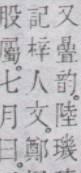 又疊韵。陸璣
記梓人文。鄭
股屬七月曰。